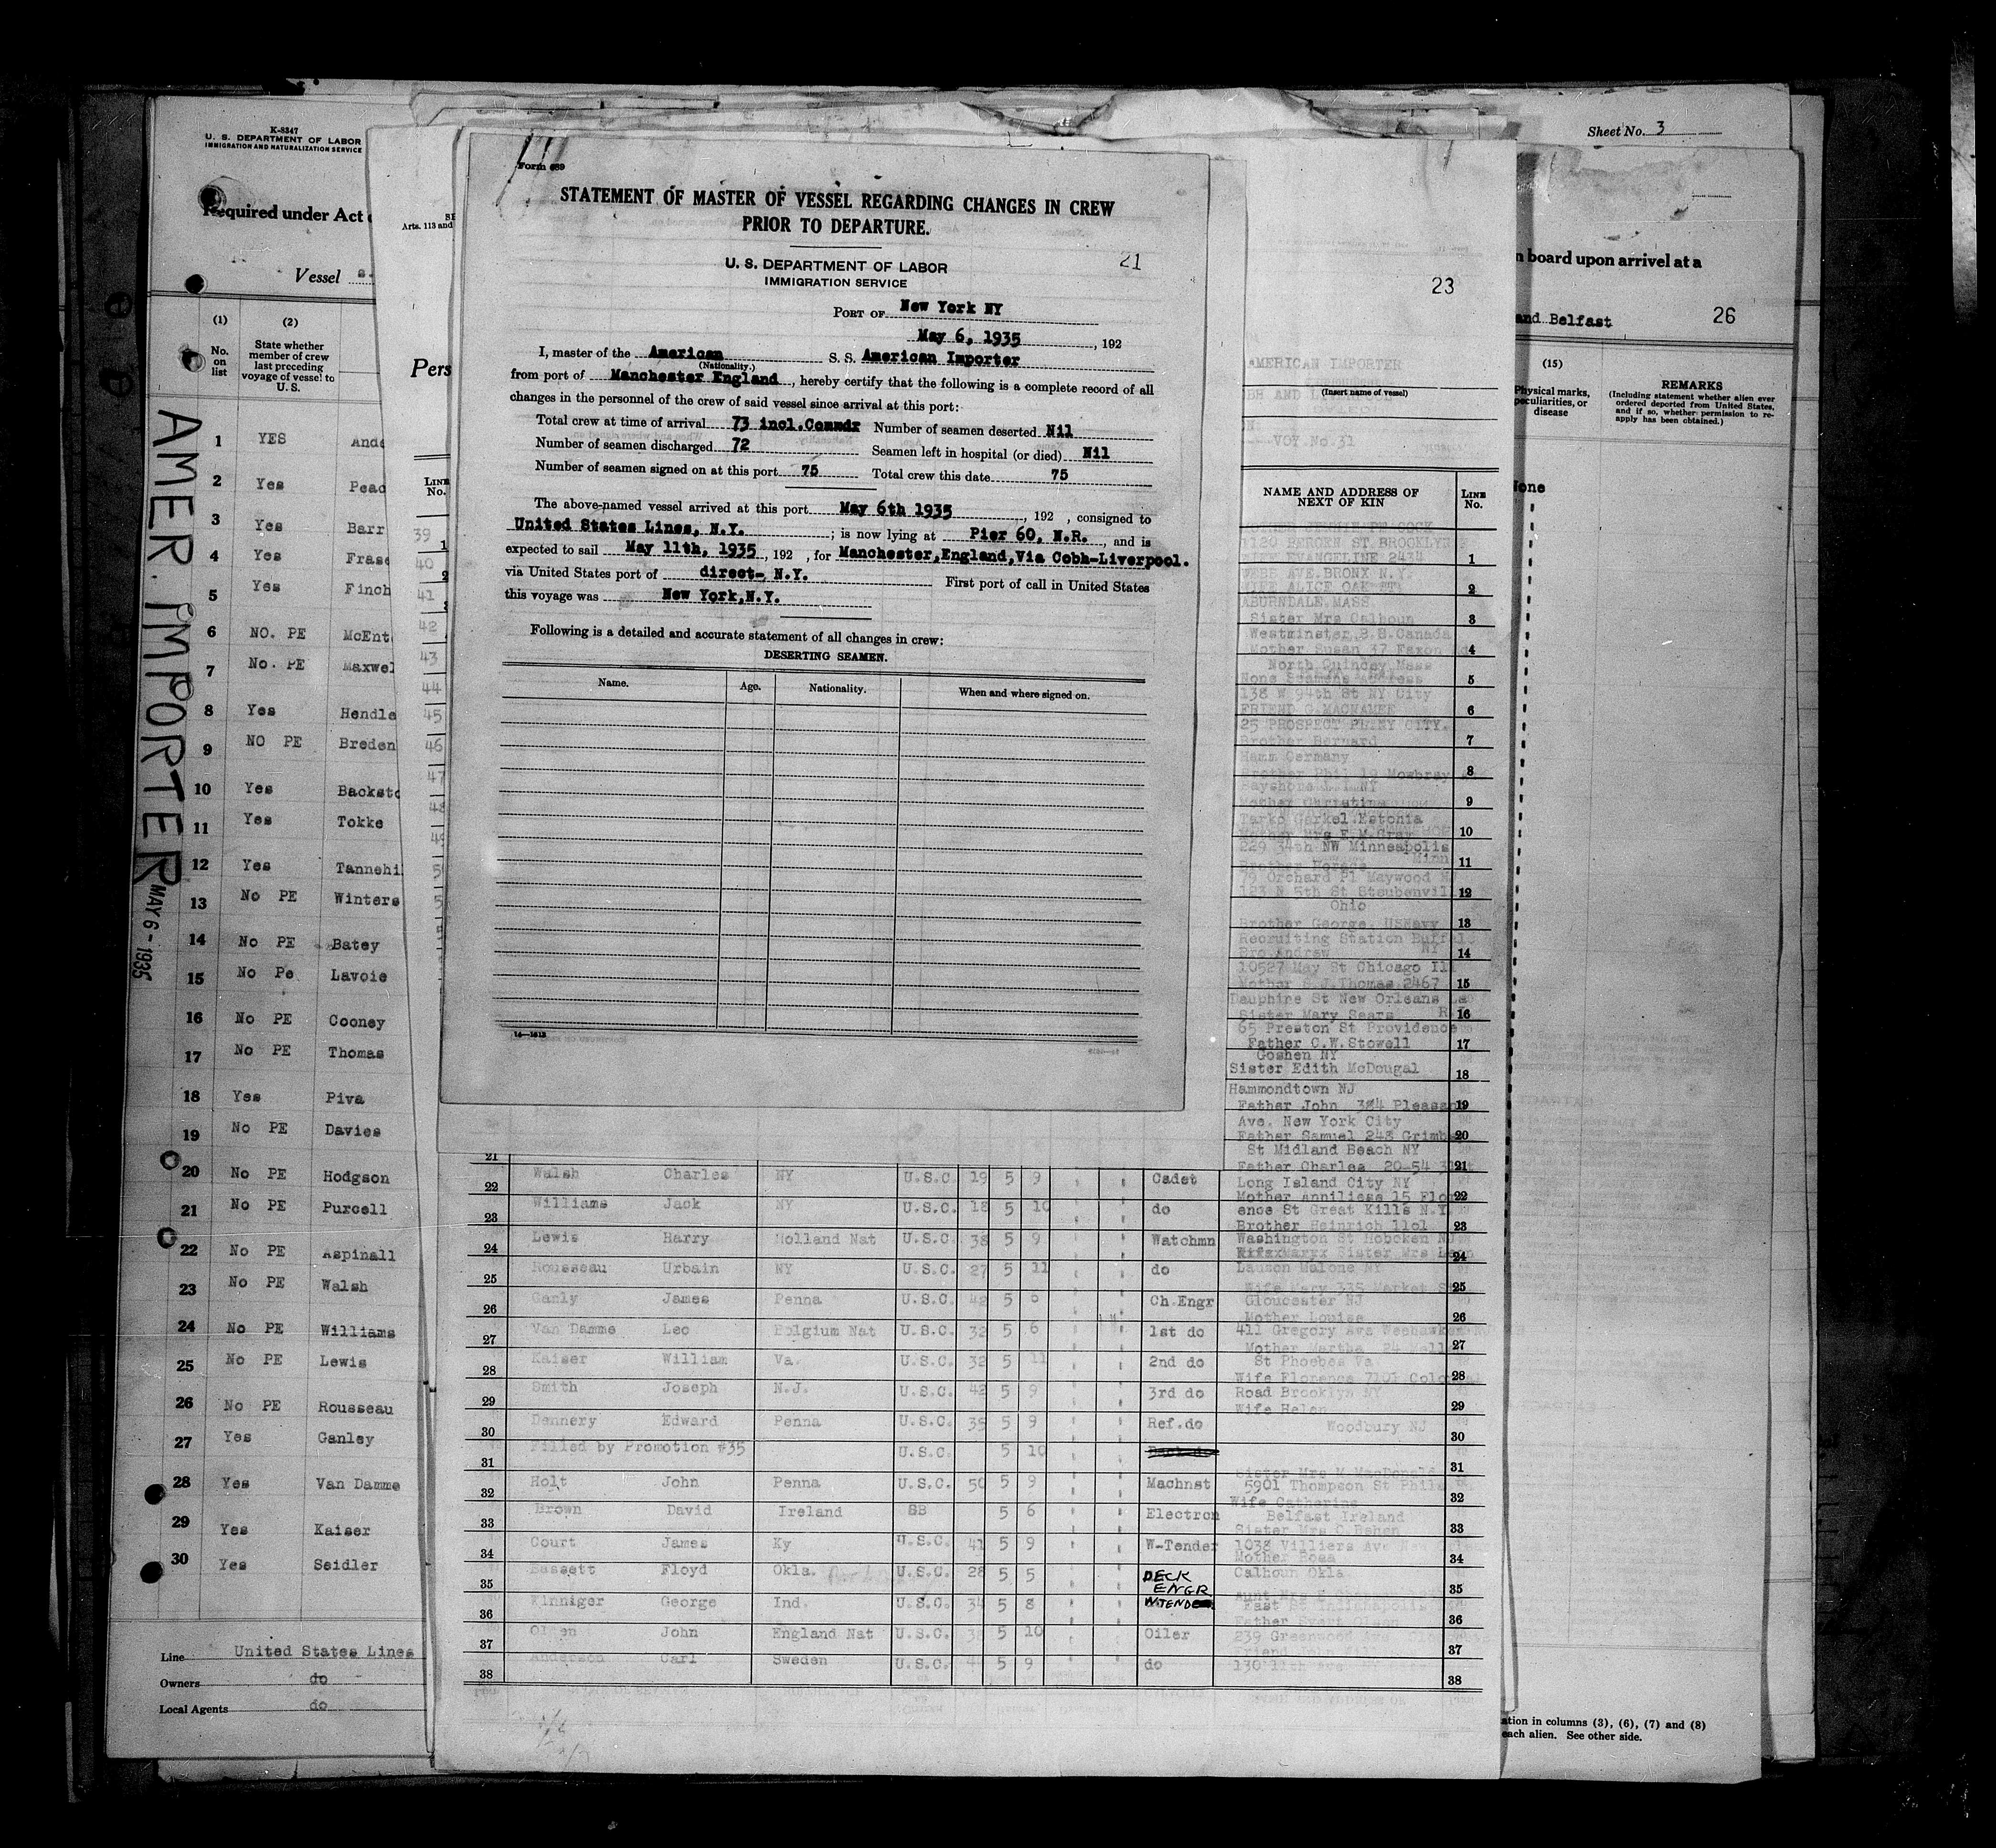 K-8347
U. S. DEPARTMENT OF LABOR
IMMIGRATION AND NATURALIZATION SERVICE
Required under Act
Vessel
(1)
(2)
No. on list
State whether member of crew last preceding voyage of vessel to U. S.
1 YES Ande
2 Yes Peac
3 Yes Barr
4 Yes Frase
5 Yes Finch
6 NO. PE McEnt
7 No. PE Maxwel
8 Yes Hendle
9 NO PE Breden
10 Yes Backsto
11 Yes Tokke
12 Yes Tannehi
13 No PE Winters
14 No PE Batey
15 No Pe Lavoie
16 No PE Cooney
17 No PE Thomas
18 Yes Piva
19 No PE Davies
20 No PE Hodgson
21 No PE Purcell
22 No PE Aspinall
23 No PE Walsh
24 No PE Williams
25 No PE Lewis
26 No PE Rousseau
27 Yes Ganley
28 Yes Van Damme
29 Yes Kaiser
30 Yes Seidler
Line United States Lines
Owners do
Local Agents do
AMER. IMPORTER
MAY 6-1935
Arts. 113 and
Pers
LINE No.
39
40
41
42
43
44
45
46
47
Form 689
STATEMENT OF MASTER OF VESSEL REGARDING CHANGES IN CREW
PRIOR TO DEPARTURE.
U. S. DEPARTMENT OF LABOR
IMMIGRATION SERVICE
21
PORT OF New York NY
May 6, 1935, 192
I, master of the American S. S. American Importer
(Nationality.)
from port of Manchester England, hereby certify that the following is a complete record of all
changes in the personnel of the crew of said vessel since arrival at this port:
Total crew at time of arrival 73 incl.Commdr Number of seamen deserted Nil
Number of seamen discharged 72 Seamen left in hospital (or died) Nil
Number of seamen signed on at this port 75 Total crew this date 75
The above-named vessel arrived at this port May 6th 1935, 192 , consigned to
United States Lines, N.Y. ; is now lying at Pier 60, N.R., and is
expected to sail May 11th, 1935, 192 , for Manchester,England,Via Cobh-Liverpool.
via United States port of direct- N.Y. First port of call in United States
this voyage was New York,N.Y.
Following is a detailed and accurate statement of all changes in crew:
DESERTING SEAMEN.
Name. Age. Nationality. When and where signed on.
14—1613
23
AMERICAN IMPORTER
(Insert name of vessel)
VOY No.31
NAME AND ADDRESS OF NEXT OF KIN
LINE No.
1120 BERGEN ST. BROOKLYN
EVANGELINE 2434 1
WEBB AVE.BRONX N.Y.
WIFE ALICE OAK 2
ABURNDALE MASS
Sister Mrs Calhoun 3
Westminster,B.B.Canada
Mother Susan 37 Faxon 4
North Quincey Mass
5
138 W 94th St NY City
FRIEND G.MACNAMEE 6
25 PROSPECT PL.NY CITY.
Brother Bernard 7
Hamm Germany
Brother Phil 15 Mowbray 8
Bayshore NY
Mother Christine 9
Estonia
Mother Mrs E.M.Gray 10
229 34th NW Minneapolis
Minn
Brother Horace 11
79 Orchard Pl Maywood
123 N 5th St Steubenvil 12
Ohio
Brother George USNavy 13
Recruiting Station Buffal
NY
Bro Andrew 14
10527 May St Chicago Il
Mother S.J.Thomas 2467 15
Dauphine St New Orleans La
Sister Mary Sears 16
65 Preston St Providence
Father C.W.Stowell 17
Goshen NY
Sister Edith McDougal 18
Hammondtown NJ
Father John 384 Pleasan 19
Ave. New York City
Father Samuel 243 Grimb 20
St Midland Beach NY
Father Charles 20-54 21
21
22 Walsh Charles NY U.S.C. 19 5 9 Cadet Long Island City NY
Mother Anniliese 15 Flor 22
23 Williams Jack NY U.S.C. 18 5 10 do ence St Great Kills N.Y.
Brother Heinrich 1101 23
24 Lewis Harry Holland Nat U.S.C. 38 5 9 Watchmn Washington St Hoboken NJ
Sister Mrs Leon 24
25 Rousseau Urbain NY U.S.C. 27 5 11 do Lauzon Malone NY
Wife Mary 335 Market St 25
26 Ganly James Penna U.S.C. 42 5 6 Ch.Engr Gloucester NJ
Mother Louise 26
27 Van Damme Leo Belgium Nat U.S.C. 32 5 6 1st do 411 Gregory Ave Weehawken
Mother Martha 24 Mell 27
28 Kaiser William Va. U.S.C. 32 5 11 2nd do St Phoebes Va
Wife Florence 7101 Colo 28
29 Smith Joseph N.J. U.S.C. 42 5 9 3rd do Road Brooklyn NY
Wife Helen 29
30 Dennery Edward Penna U.S.C. 39 5 9 Ref.do Woodbury NJ 30
31 Filled by Promotion #35 U.S.C. 5 10
Sister Mrs M MacDonald 31
32 Holt John Penna U.S.C. 50 5 9 Machnst 5901 Thompson St Phila
Wife Catherine 32
33 Brown David Ireland BB 5 6 Electron Belfast Ireland
Sister Mrs C.Behan 33
34 Court James Ky U.S.C. 41 5 9 W-Tender 1038 Villiers Ave New
Mother Rosa 34
35 Bassett Floyd Okla. U.S.C. 28 5 5 DECK ENGR Calhoun Okla
35
36 Kinniger George Ind. U.S.C. 34 5 8 WTENDER East St Indianapolis
36
37 Olsen John England Nat U.S.C. 5 10 Oiler 239 Greenwood
37
38 Anderson Carl Sweden U.S.C. 5 9 do 130 11th Ave
38
Sheet No. 3
n board upon arrival at a
and Belfast 26
(15)
Physical marks, peculiarities, or disease
REMARKS
(Including statement whether alien ever ordered deported from United States, and if so, whether permission to re-apply has been obtained.)
None
ation in columns (3), (6), (7) and (8)
each alien. See other side.